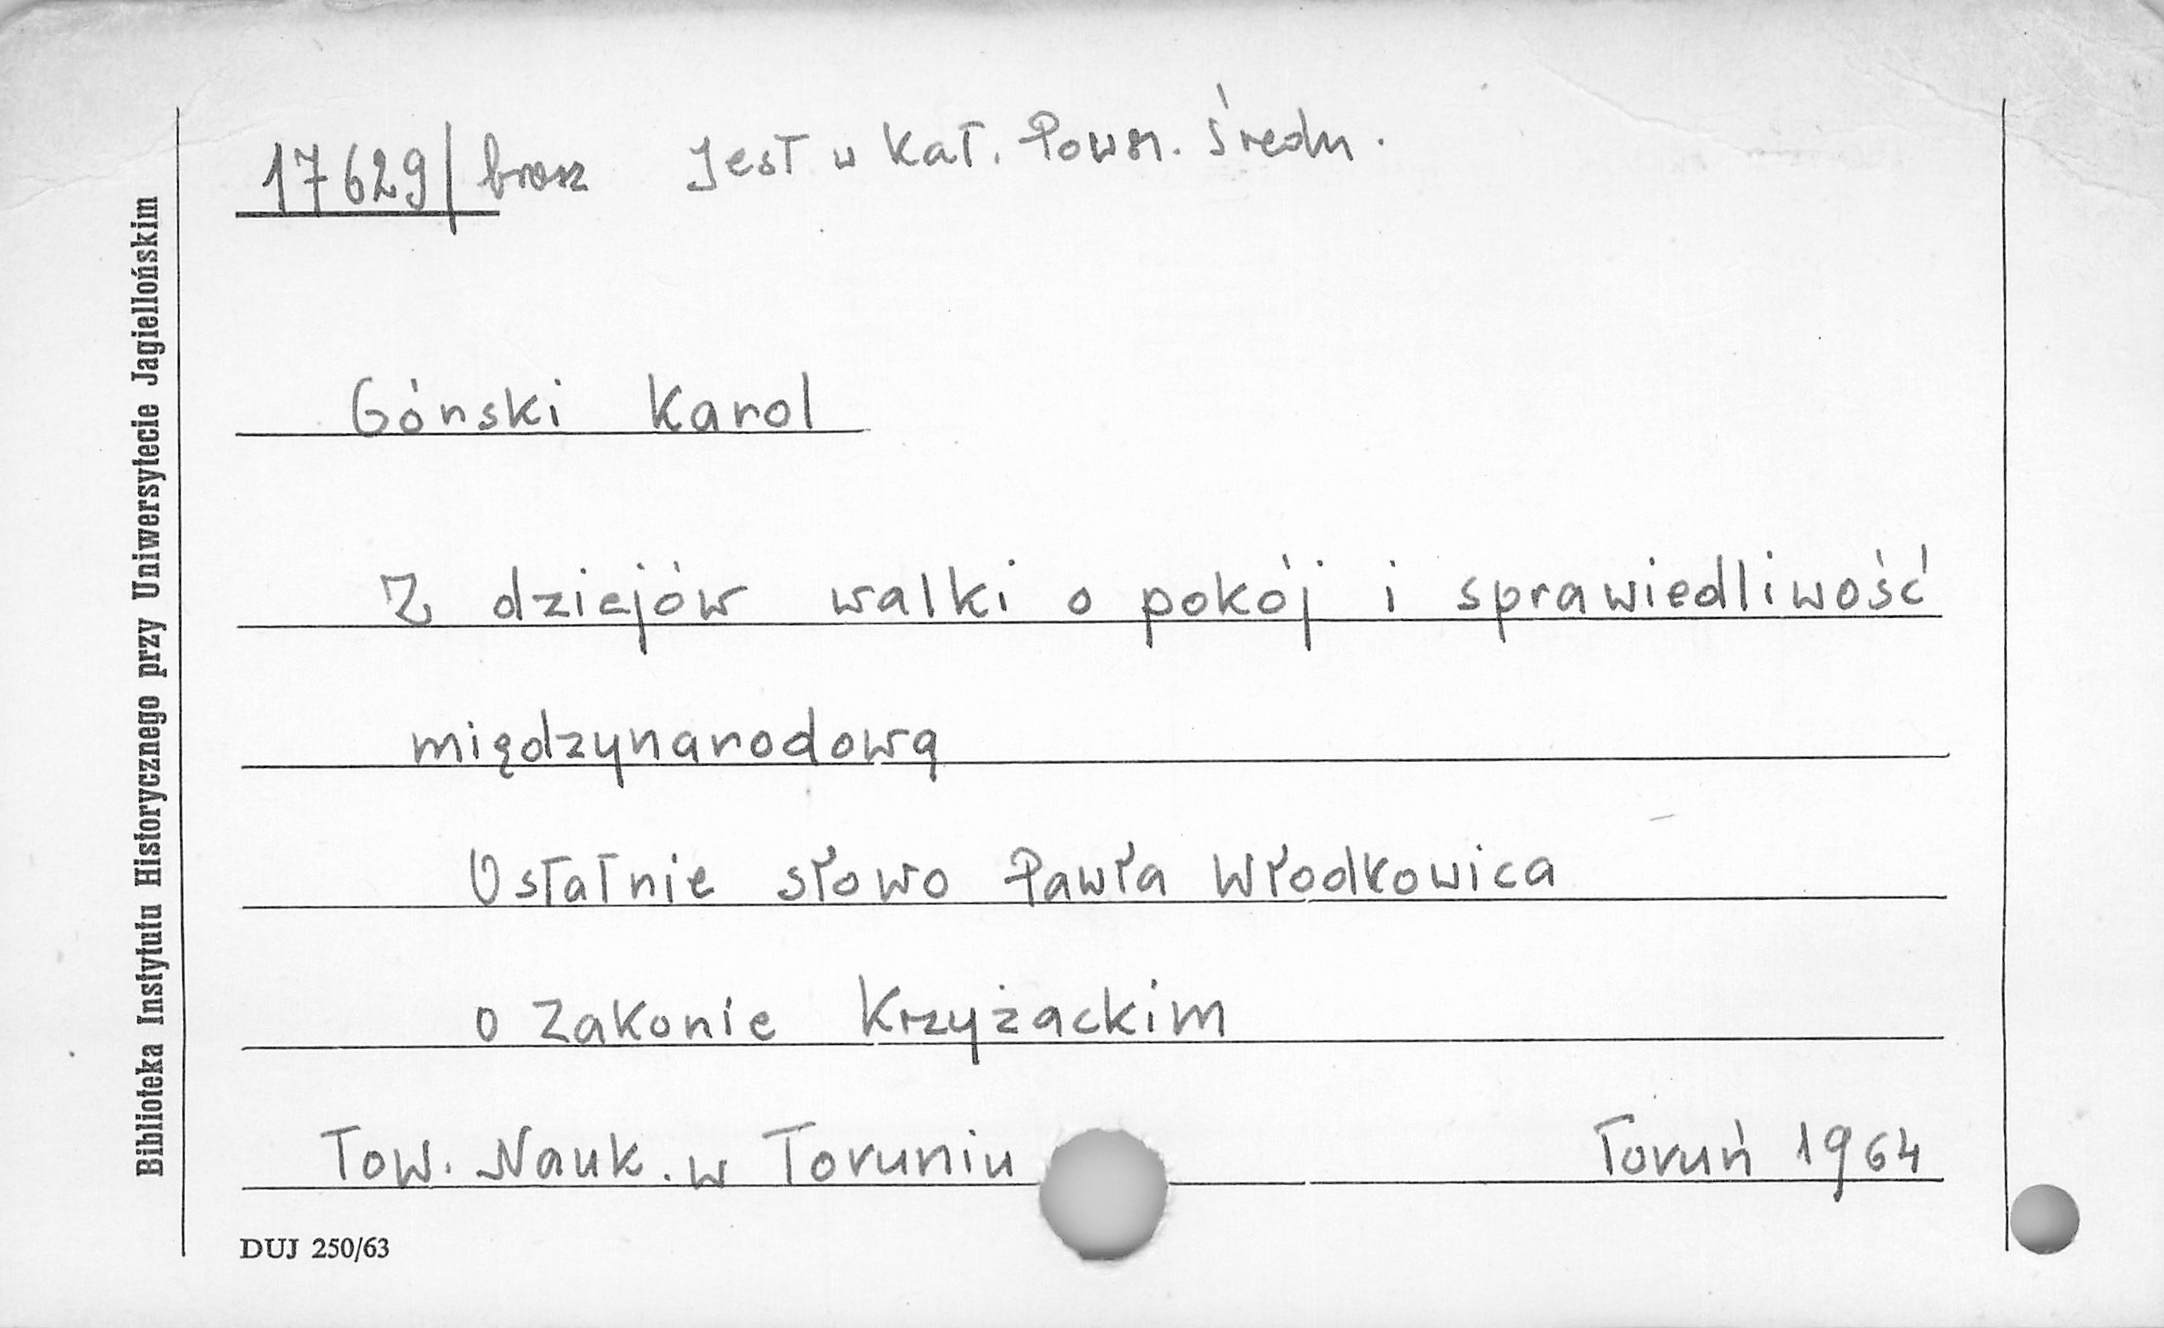 17629/brosz Jest w kat. Pows. Średn.
Górski Karol
Z dziejów walki o pokój i sprawiedliwość
międzynarodową
Ostatnie słowo Pawła Włodkowica
o Zakonie Krzyżackim
Tow. Nauk. w Toruniu Toruń 1964
DUJ 250/63
Biblioteka Instytutu Historycznego przy Uniwersytecie Jagiellońskim